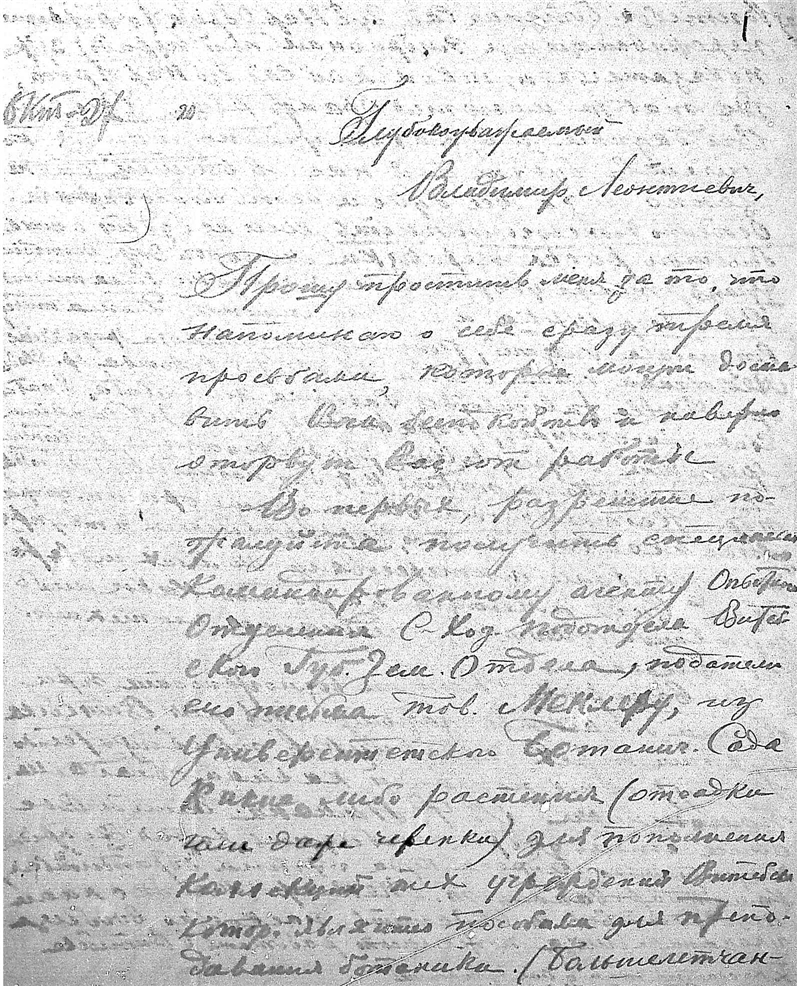 1
20
Глубокоуважаемый
Владимир Леонтиевич,
Прошу простить меня за то, что
напоминаю о себе сразу тремя
просьбами, которые могут доста-
вить Вам беспокойств и наверно
оторвут Вас от работы
Во первых, разрешите по-
жалуйста получить специально
командированному агенту Опытного
Отделения С-Хоз. подотдела Витеб
ского Губ. Зем. Отдела, подателю
сего письма тов. Меклеру, из
Университетского Ботанич. Сада
какие либо растения (отсадки
или даже черенки) для пополнения
коллекций тех учреждений Витебска
котор. явл. пособиями для препо-
давания ботаники. (